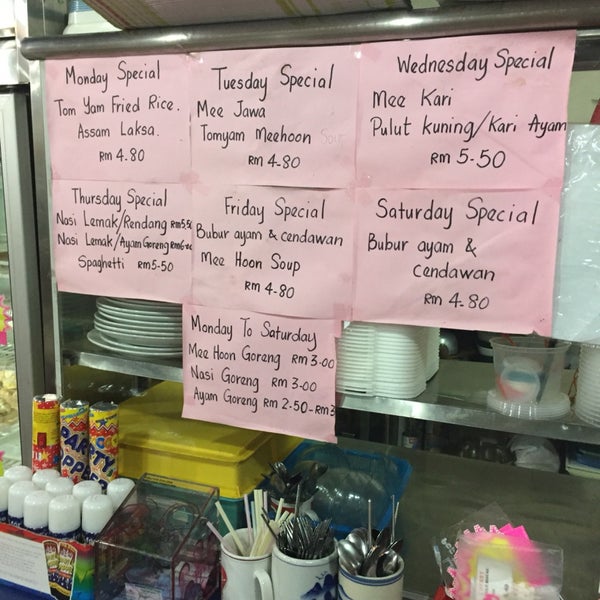 Monday Special
Tom Yam Fried Rice.
Assam Laksa.
RM 4.80
Tuesday Special
Mee Jawa
Tomyam Meehoon Soup
RM 4.80
Wednesday Special
Mee Kari
Pulut Kuning/Kari Ayam
RM 5-50
Thursday Special
Nasi Lemak/Rendang RM5.50
Nasi Lemak/Ayam Goreng RM6-00
Spaghetti RM5-50
Friday Special
Bubur ayam & cendawan
Mee Hoon Soup
RM 4-80
Saturday Special
Bubur ayam &
cendawan
RM 4-80
Monday To Saturday
Mee Hoon Goreng RM 3-00
Nasi Goreng RM 3-00
Ayam Goreng RM 2-50-RM3
PARTY
POPPER